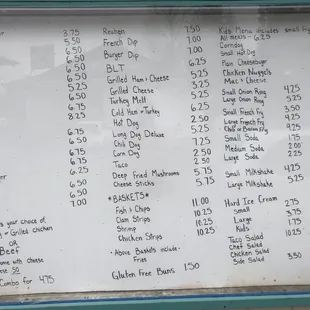 3.75
5.50
6.50
6.50
6.50
5.25
6.50
6.75
8.25
6.75
6.50
6.75
6.75
6.25
6.50
6.50
7.00
s your choice of
or Grilled chicken
OR
Beef
ome with cheese
50
Combo for 4.75
Reuben 7.50
French Dip 7.00
Burger Dip 7.00
BLT
Grilled Ham & Cheese 5.25
Grilled Cheese
Turkey Melt
Cold Ham or Turkey
Hot Dog 2.50
Long Dog Deluxe
Chili Dog
Corn Dog 2.50
Taco 2.50
Deep Fried Mushrooms 5.75
Cheese Sticks 5.75
*BASKETS*
Fish & Chips 11.00
Clam Strips 10.25
Shrimp 10.25
Chicken Strips 10.25
• Above Baskets include-
Fries
Gluten Free Buns 1.50
Kids Menu includes small fry
All meals - 6.25
Corndog
Small Hot Dog
Plain Cheeseburger
Chicken Nuggets
Mac & Cheese
Small Onion Ring 4.25
Large Onion Ring 5.25
Small French Fry 3.50
Large French Fry 4.25
Small Soda 1.75
Medium Soda 2.00
Large Soda 2.25
Small Milkshake 4.25
Large Milkshake 5.25
Hard Ice Cream
Small 2.75
Large 3.75
Kids 1.75
Taco Salad
Chef Salad
Chicken Salad
Side Salad 3.50